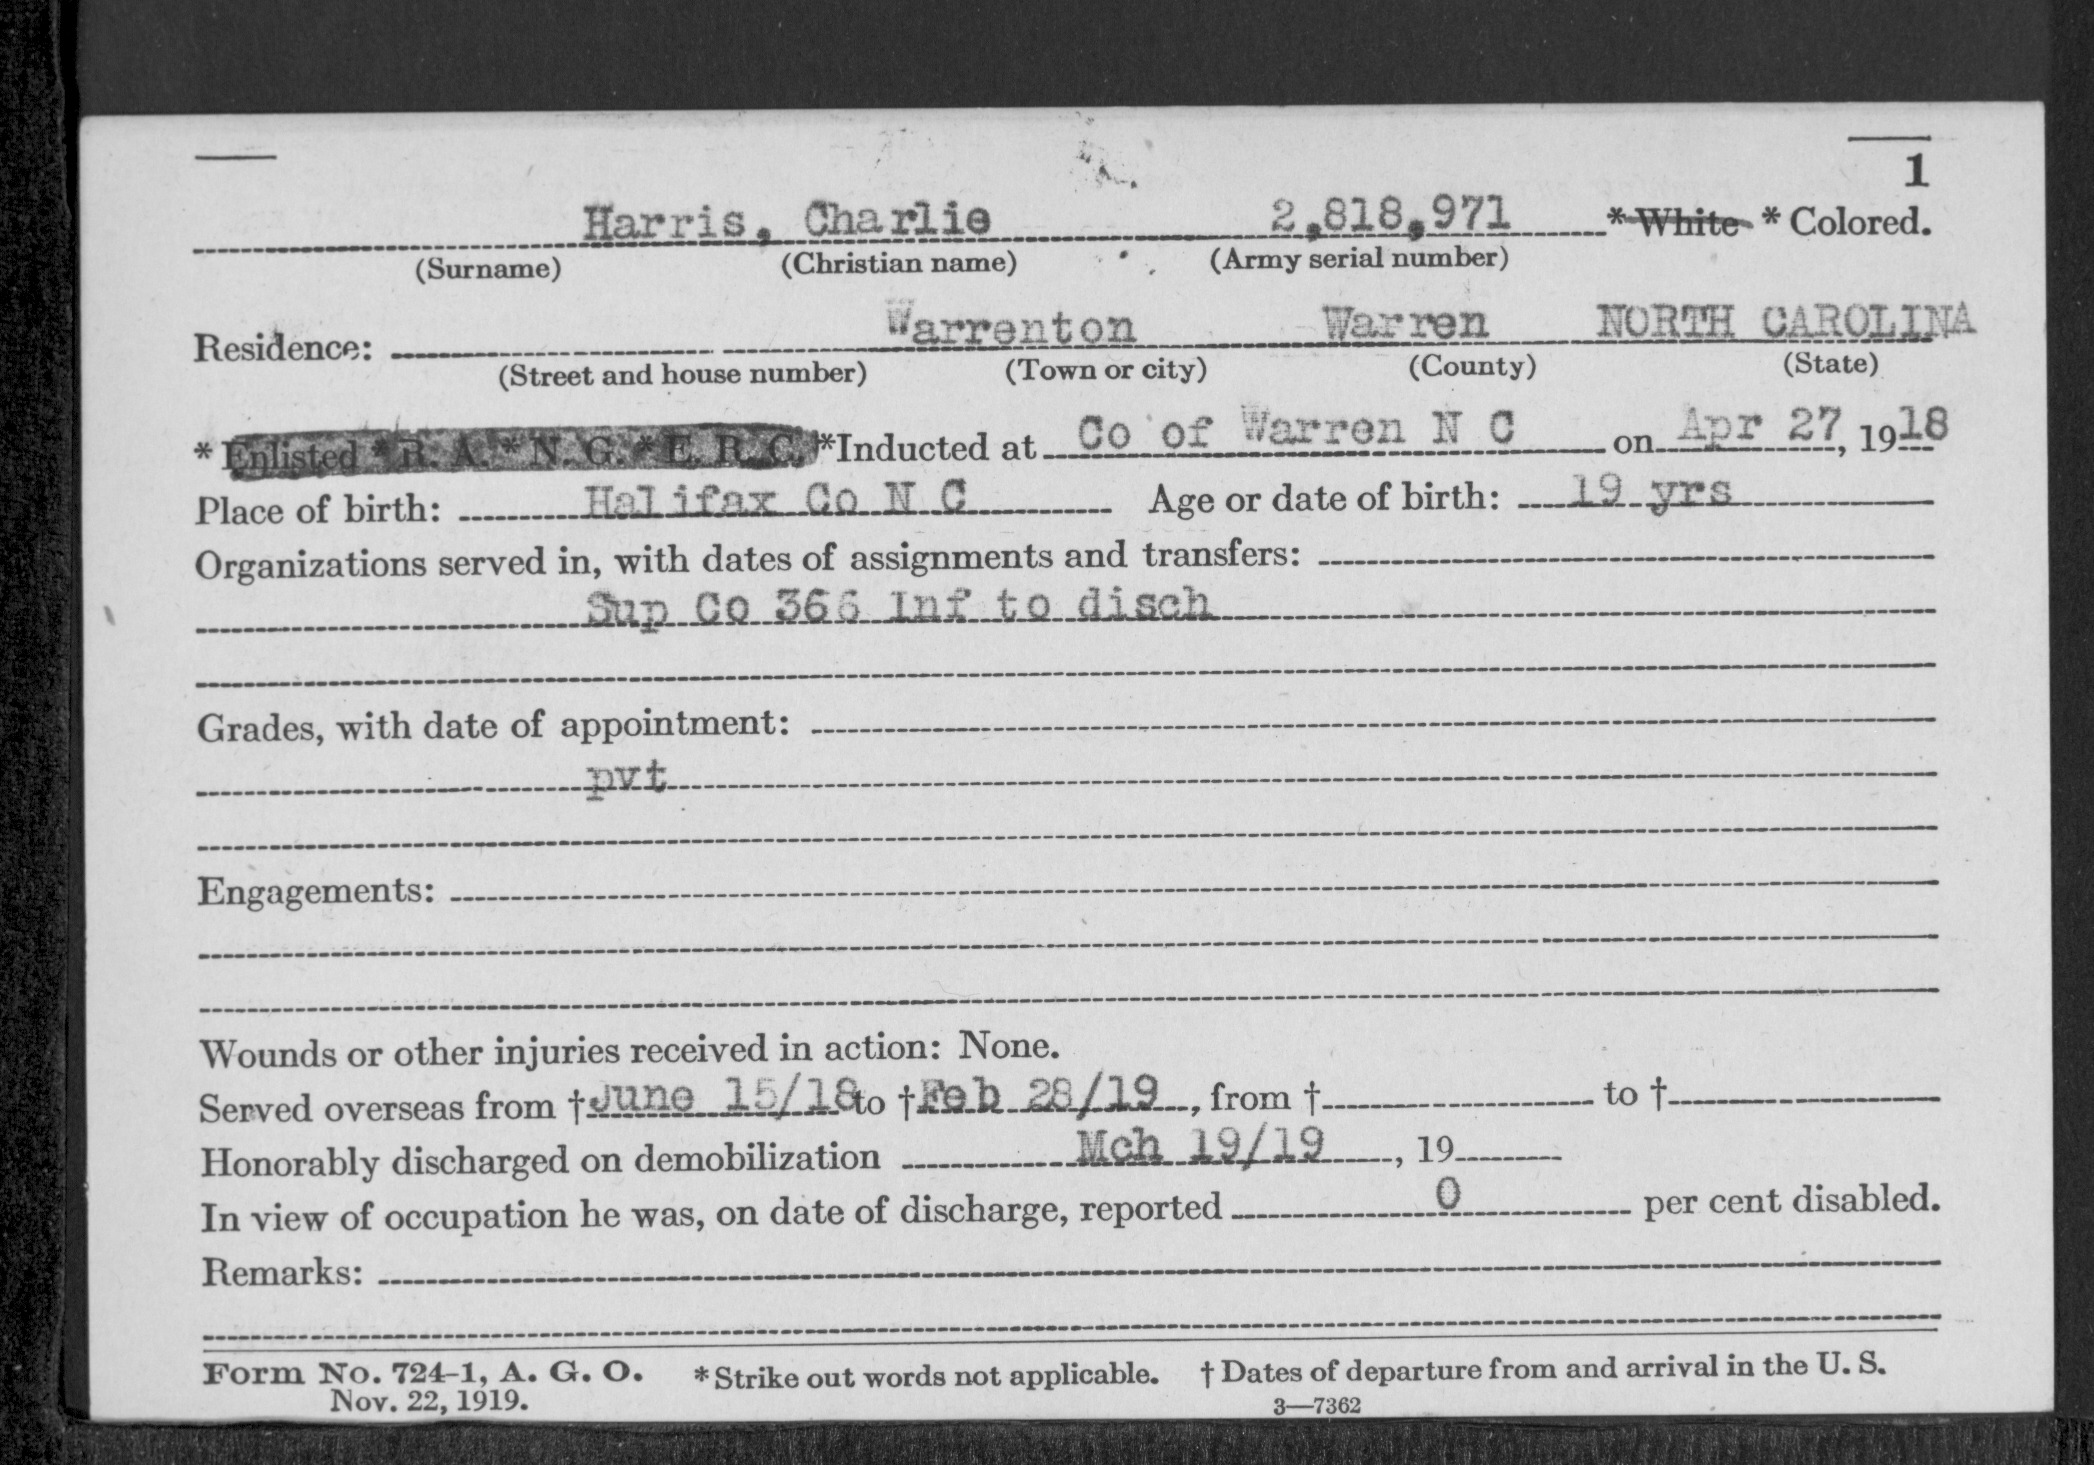 1
Harris, Charlie 2,818,971 *White *Colored.
(Surname) (Christian name) (Army serial number)
Residence: Warrenton Warren NORTH CAROLINA
(Street and house number) (Town or city) (County) (State)
*Enlisted *R. A. *N. G. *E. R. C. *Inducted at Co of Warren N C on Apr 27, 1918
Place of birth: Halifax Co N C Age or date of birth: 19 yrs
Organizations served in, with dates of assignments and transfers:
Sup Co 366 Inf to disch
Grades, with date of appointment:
pvt
Engagements:
Wounds or other injuries received in action: None.
Served overseas from †June 15/18 to †Feb 28/19, from † to †
Honorably discharged on demobilization Mch 19/19, 19
In view of occupation he was, on date of discharge, reported 0 per cent disabled.
Remarks:
Form No. 724-1, A. G. O. *Strike out words not applicable. †Dates of departure from and arrival in the U. S.
Nov. 22, 1919. 3—7362